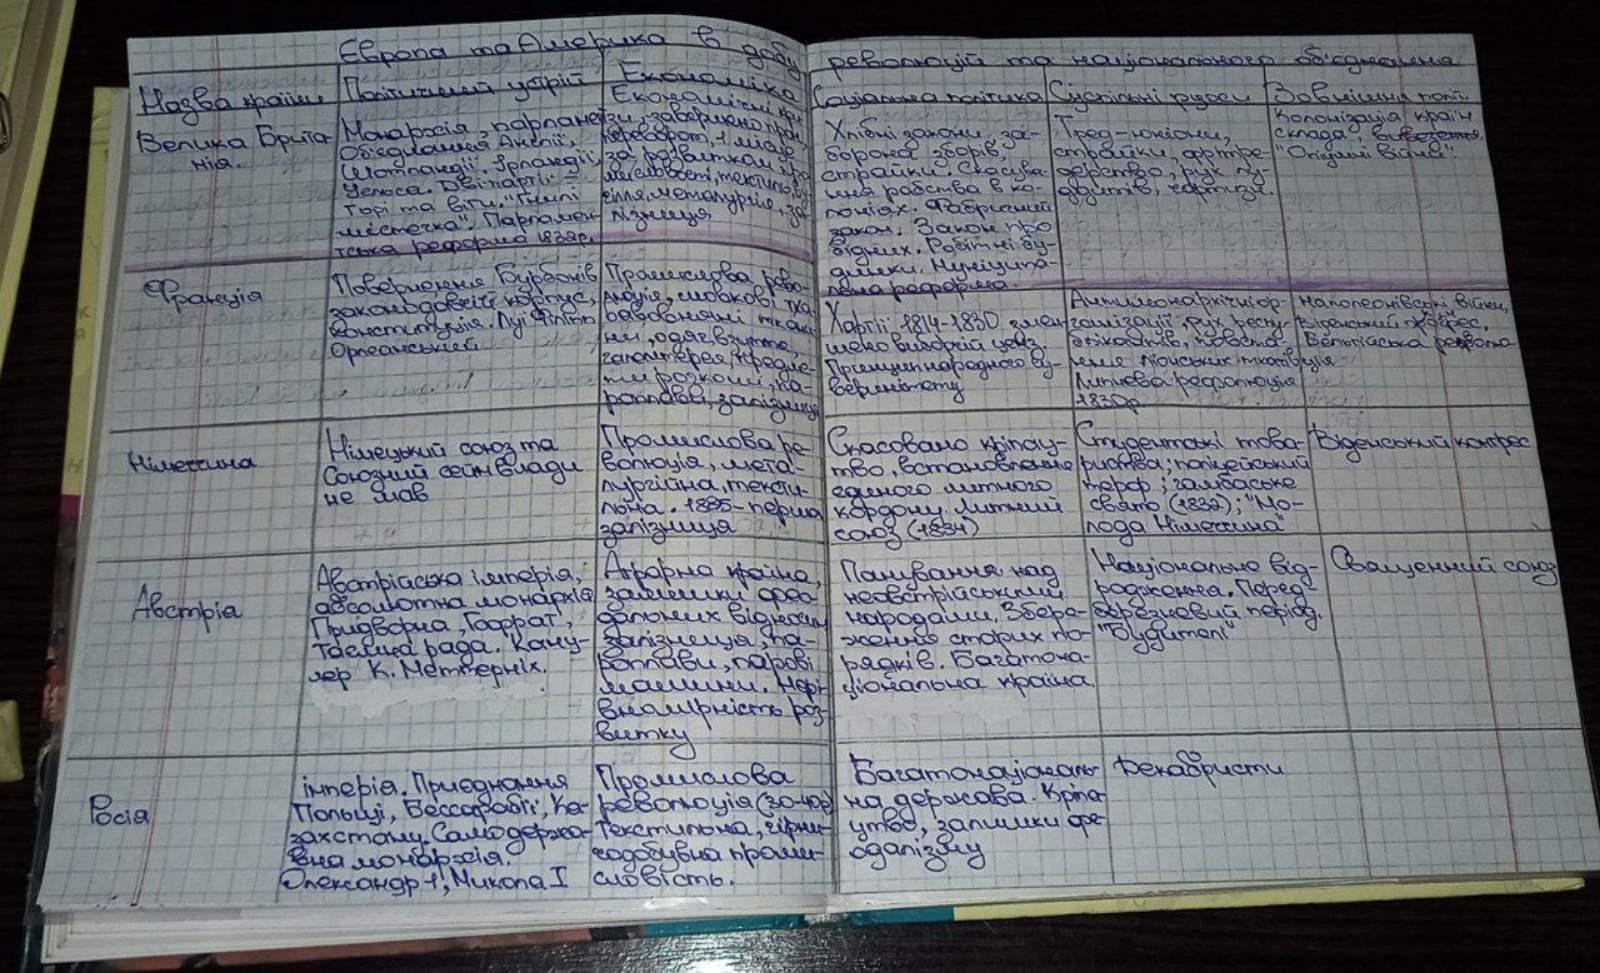 Європа та Америка в добу революцій та національного об'єднання
Назва країни
Політичний устрій
Економіка
Соціальна політика
Суспільні рухи
Зовнішня політ.
Велика Брита-
нія.
Монархія, парламент
Об'єднання Англії,
Шотландії. Ірландії,
Уельса. Дві партії:
торі та віги. "Гнилі
містечка". Парламен-
тська реформа 1832р.
Економічні кри-
зи, завершено пром.
переворот, 1 місце
за розвитком про-
мисловості, текстиль, ву-
гілля, металургія, за-
лізниця
Хлібні закони, за-
борона зборів,
страйки. Скасува-
ння рабства в ко-
лоніях. Фабричний
закон. Закон про
бідних. Робітні бу-
динки. Муніципа-
льна реформа.
Тред-юніони,
страйки, фрітре-
дерство, рух лу-
ддитів, чартизм.
Колонізація країн
склада.
"Опіумні війни".
Франція
Повернення Бурбонів
законодавчий корпус,
конституція. Луї Філіпп
Орлеанський
Промислова рево-
люція, шовкові тка
бавовняні ткани-
ни, одяг, взуття,
галантерея, предме-
ти розкоші, па-
роплави, залізниця
Хартії 1814-1830 змен-
шено виборчий ценз.
Принцип народного су-
веренітету
Антимонархічні ор-
ганізації, рух респу-
бліканців, повста-
ння ліонських ткачів
Липнева революція
1830р
Наполеонівські війни,
Віденський конгрес,
Бельгійська револю
ція
Німеччина
Німецький союз та
Союзний сейм влади
не мав
Промислова ре-
волюція, мета-
лургійна, тексти-
льна. 1835-перша
залізниця
Скасовано кріпац-
тво, встановлення
єдиного митного
кордону. Митний
союз (1834)
Студентські това-
риства; поліцейський
терор; гамбаське
свято (1832); "Мо-
лода Німеччина"
Віденський конгрес
Австрія
Австрійська імперія,
абсолютна монархія
Придворна, Гофрат,
таємна рада. Канц-
лер К. Меттерніх.
Аграрна країна,
залишки фео-
дальних відносин
залізниця, па-
роплави, парові
машини. Нері-
вномірність роз-
витку
Панування над
неавстрійськими
народами. Збере-
ження старих по-
рядків. Багатона-
ціональна країна.
Національне від-
родження. Перед-
березневий період.
"Будителі"
Священний союз
Росія
імперія. Приєднання
Польщі, Бессарабії, Ка-
захстану. Самодержа-
вна монархія.
Олександр 1, Микола I
Промислова
революція (30-40р)
Текстильна, гірни-
чодобувна проми-
словість.
Багатонаціональ-
на держава. Кріпа-
цтво, залишки фе-
одалізму
Декабристи